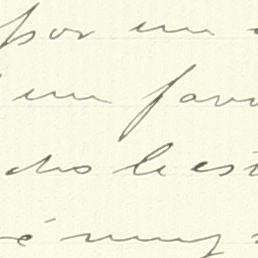 por un
un favo
chos le est
é muy